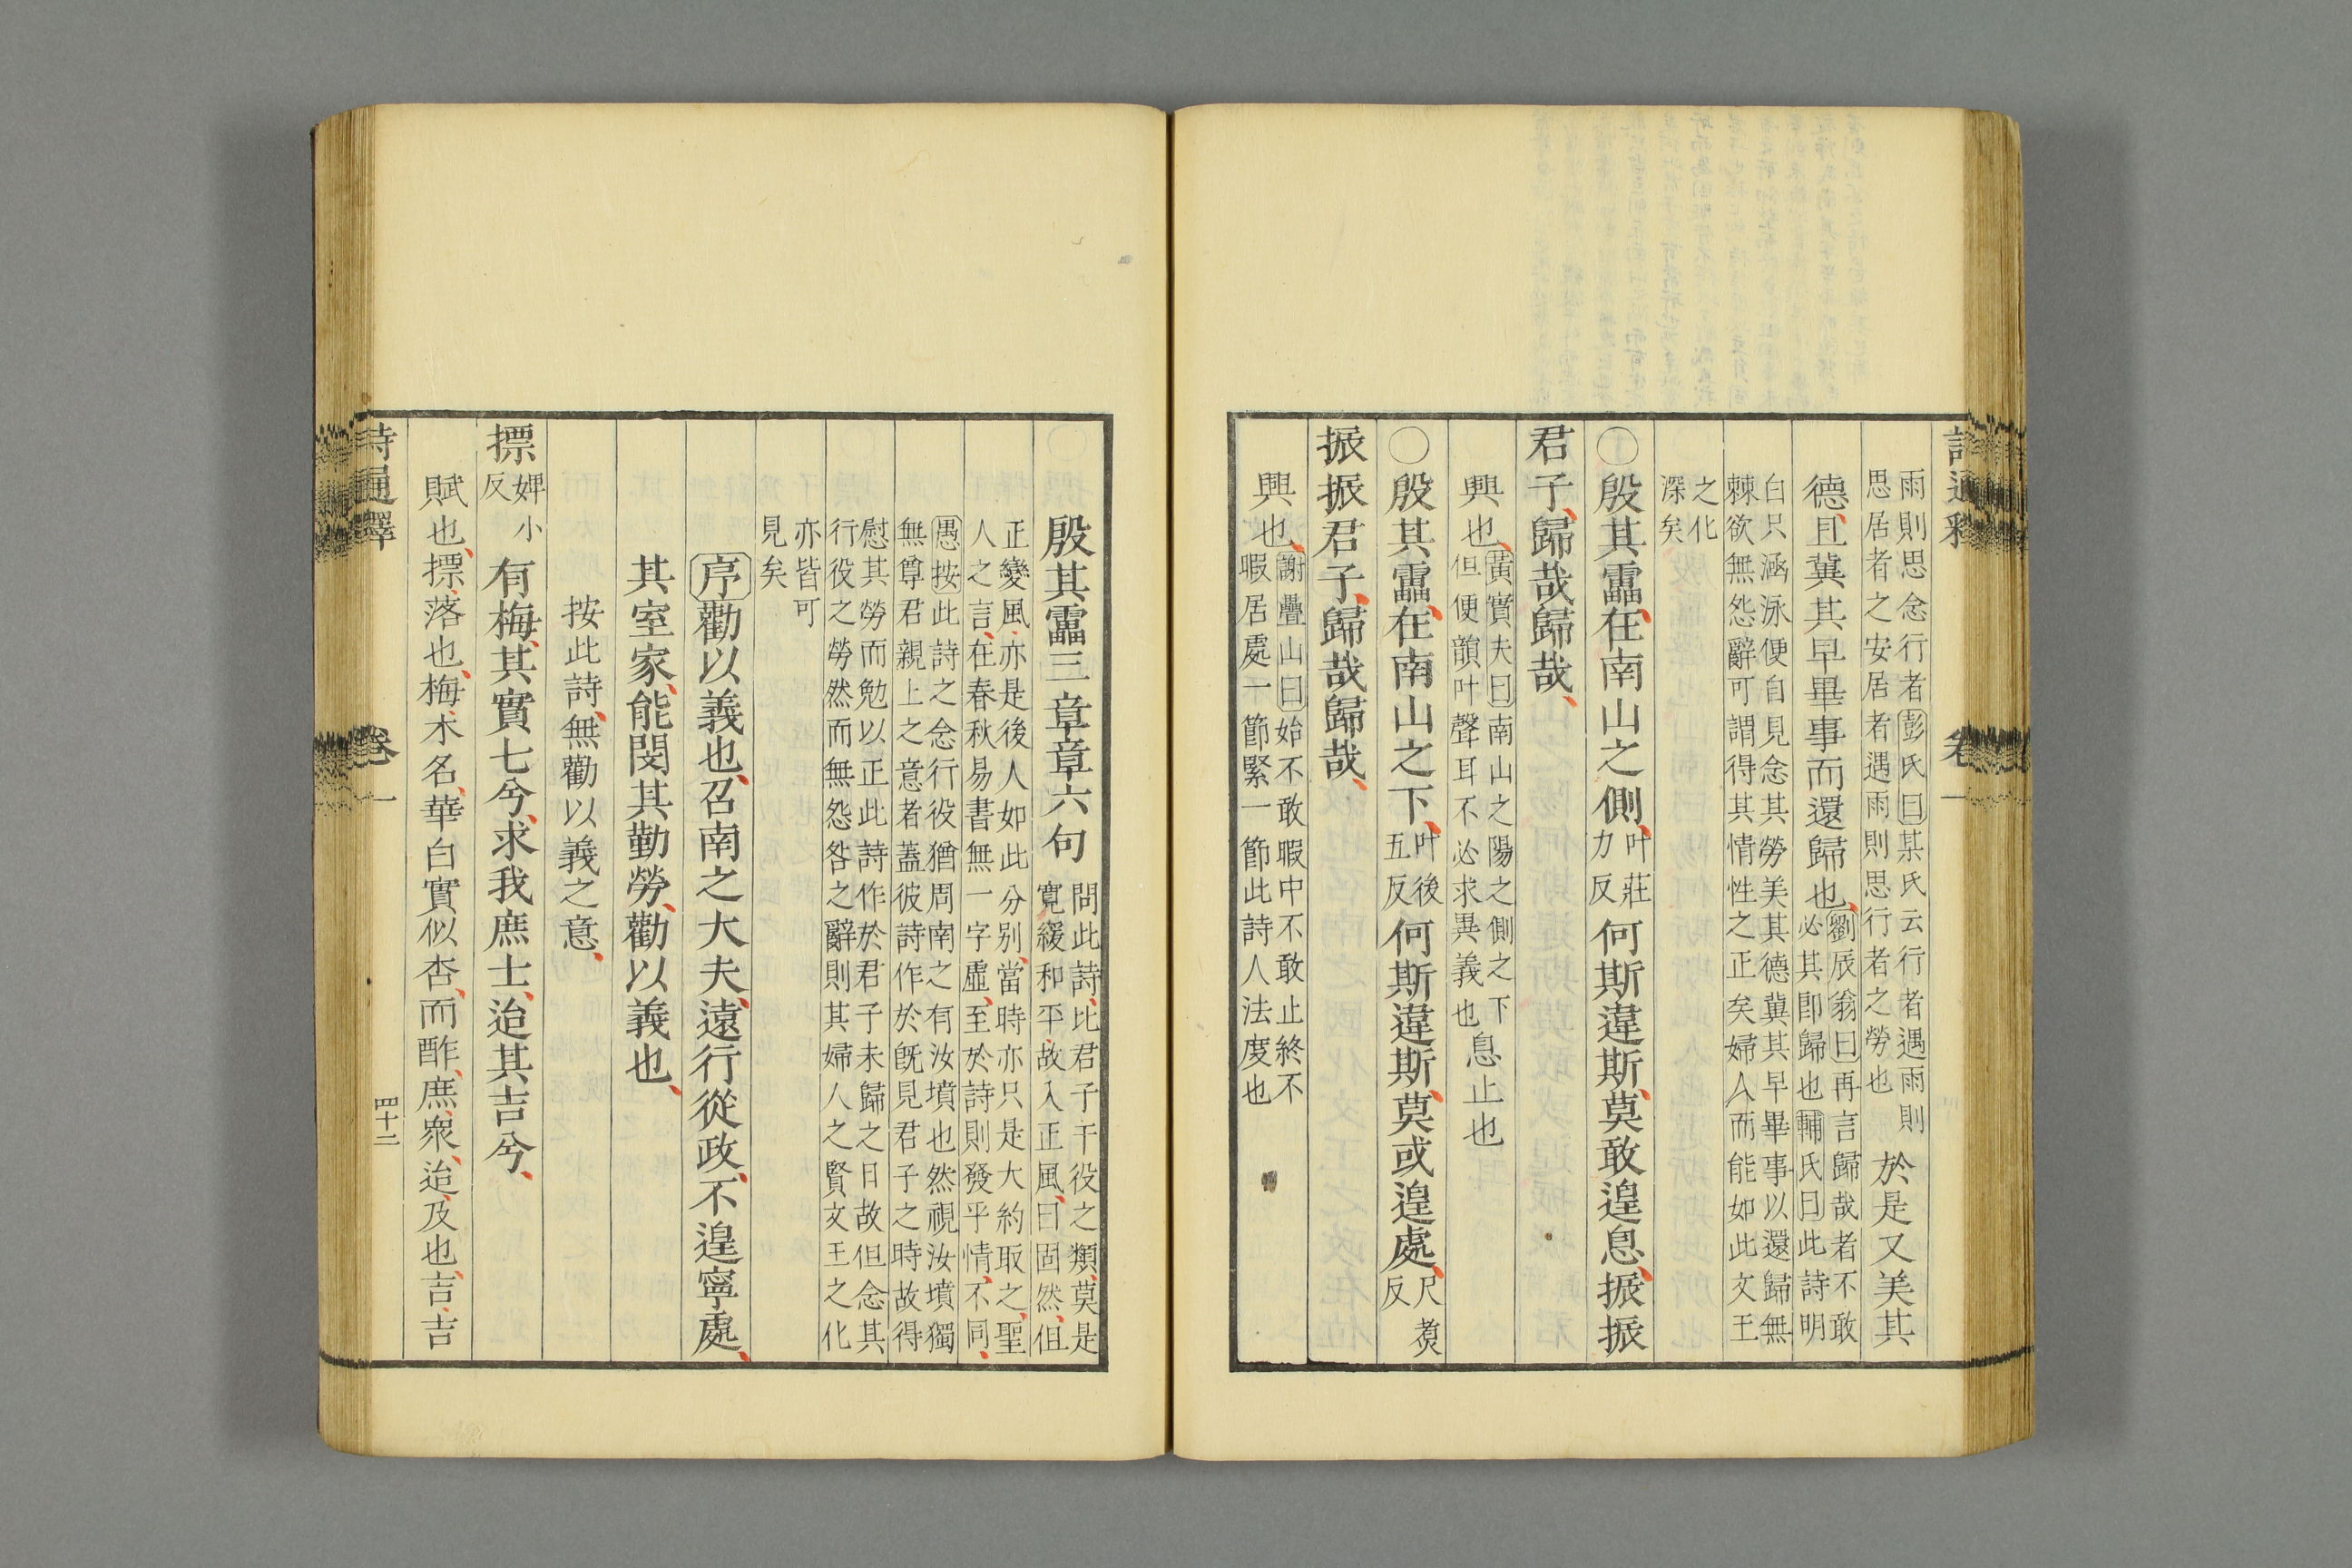 詩通釋 卷一
雨則思念行者彭氏曰某氏云行者遇雨則
思居者之安居者遇雨則思行者之勞也
於是又美其
德且冀其早畢事而還歸也劉辰翁曰再言歸哉者不敢
必其即歸也輔氏曰此詩明
白只涵泳便自見念其勞美其德冀其早畢事以還歸無
棘欲無怨辭可謂得其情性之正矣婦人而能如此文王
之化
深矣
〇殷其靁在南山之側叶莊
力反
何斯違斯莫敢遑息振振
君子歸哉歸哉
興也黃實夫曰南山之陽之側之下
但便韻叶聲耳不必求異義也
息止也
〇殷其靁在南山之下叶後
五反
何斯違斯莫或遑處尺煑
反
振振君子歸哉歸哉
興也謝疊山曰始不敢暇中不敢止終不
暇居處一節緊一節此詩人法度也
殷其靁三章章六句問此詩比君子于役之類莫是
寛緩和平故入正風曰固然但
正變風亦是後人如此分別當時亦只是大約取之聖
人之言在春秋易書無一字虛至於詩則發乎情不同
愚按此詩之念行役猶周南之有汝墳也然視汝墳獨
無尊君親上之意者蓋彼詩作於旣見君子之時故得
慰其勞而勉以正此詩作於君子未歸之日故但念其
行役之勞然而無怨咎之辭則其婦人之賢文王之化
亦皆可
見矣
序勸以義也召南之大夫遠行從政不遑寧處
其室家能閔其勤勞勸以義也
按此詩無勸以義之意
摽婢小
反
有梅其實七兮求我庶士迨其吉兮
賦也摽落也梅木名華白實似杏而酢庶衆迨及也吉吉
詩通釋 卷一 四十二